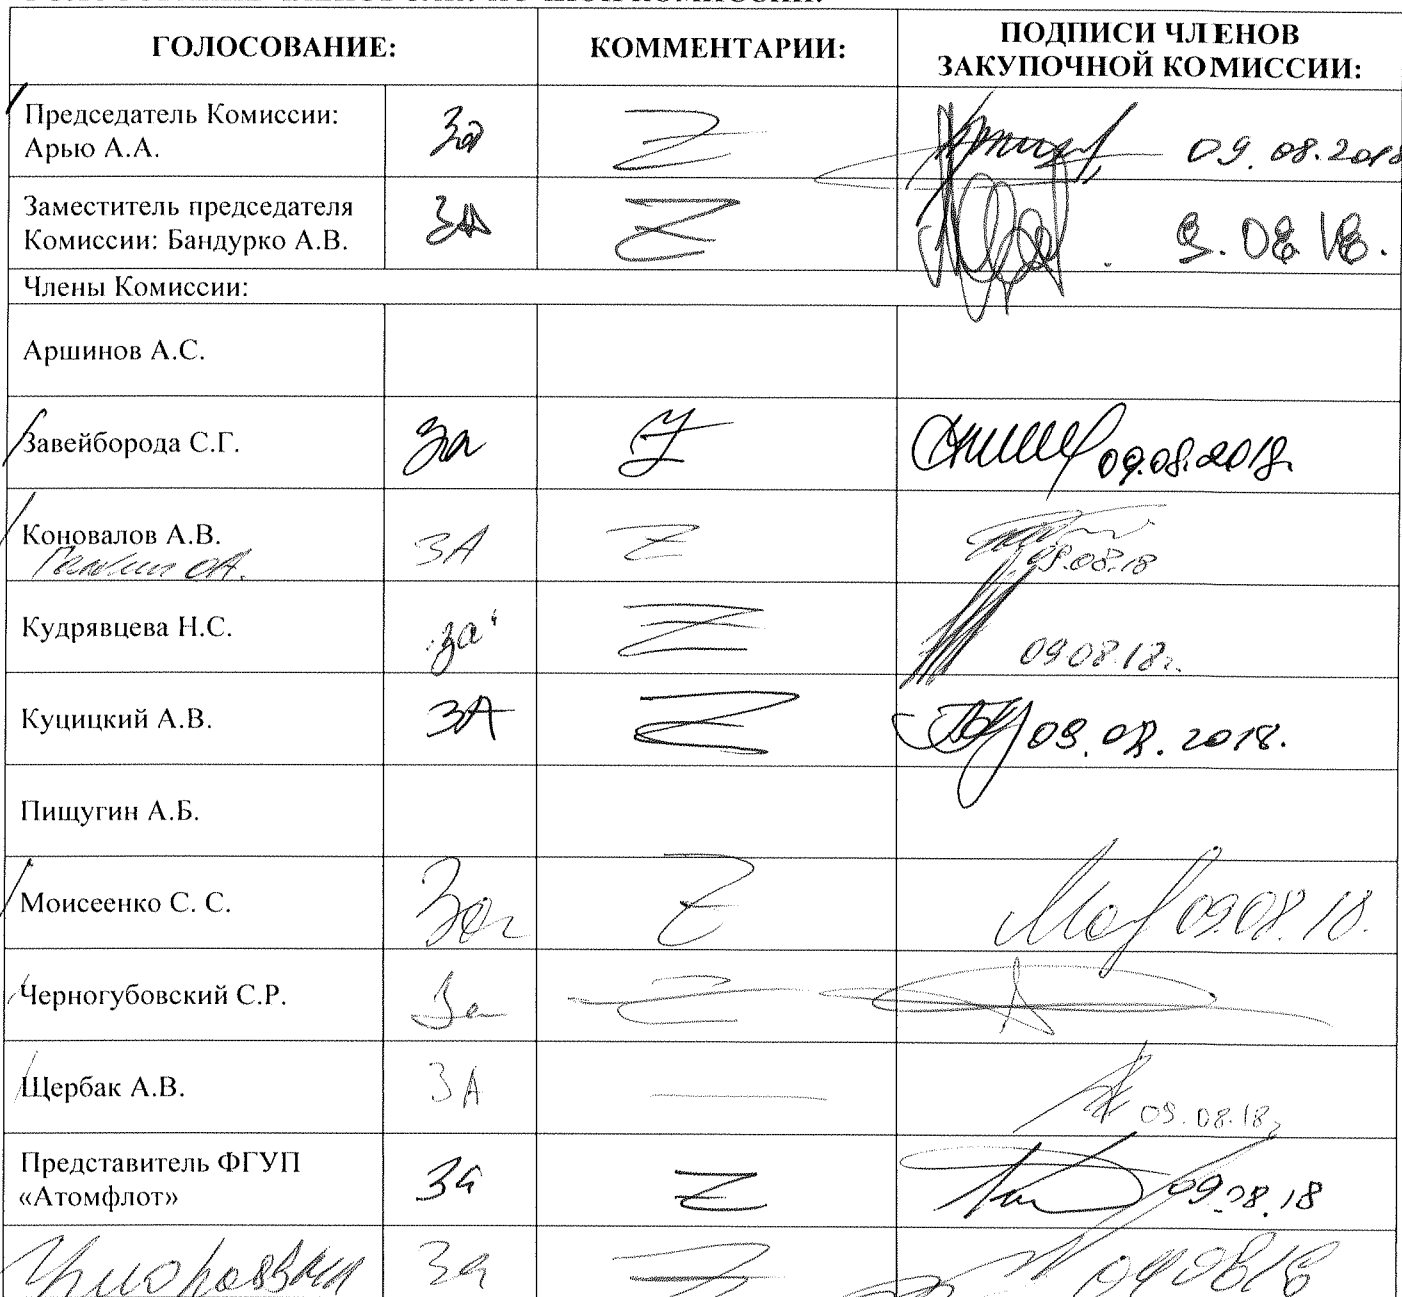 ГОЛОСОВАНИЕ: КОММЕНТАРИИ: ПОДПИСИ ЧЛЕНОВ
ЗАКУПОЧНОЙ КОМИССИИ:
Председатель Комиссии:
Арью А.А. За Z 09.08.2018
Заместитель председателя
Комиссии: Бандурко А.В. ЗА Z 9.08.18.
Члены Комиссии:
Аршинов А.С.
Завейборода С.Г. За Z 09.08.2018.
Коновалов А.В. ЗА Z 09.08.18
Кудрявцева Н.С. "за" Z 09.08.18г.
Куцицкий А.В. ЗА Z 09.08.2018.
Пищугин А.Б.
Моисеенко С. С. За Z 09.08.18.
Черногубовский С.Р. За Z
Щербак А.В. ЗА 09.08.18г
Представитель ФГУП
«Атомфлот» За Z 09.08.18
За Z 090818